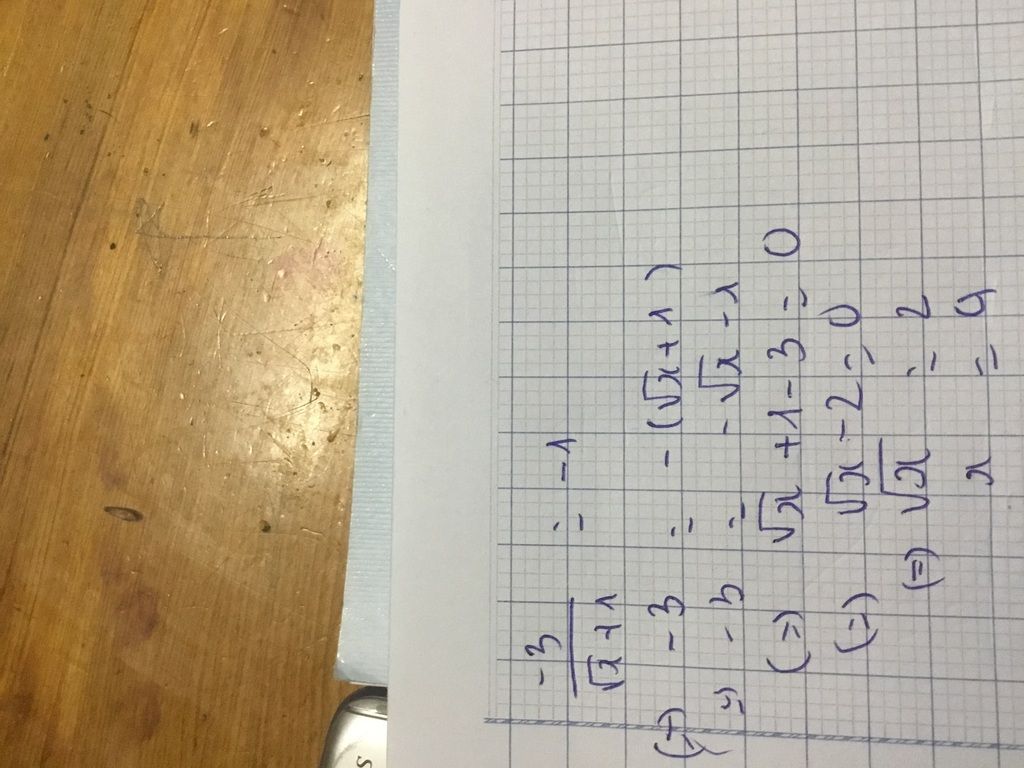 -3/(√x+1) = -1
(=) -3 = -(√x+1)
(=) -3 = -√x-1
(=) √x+1-3=0
(=) √x-2=0
(=) √x = 2
x = 4
S